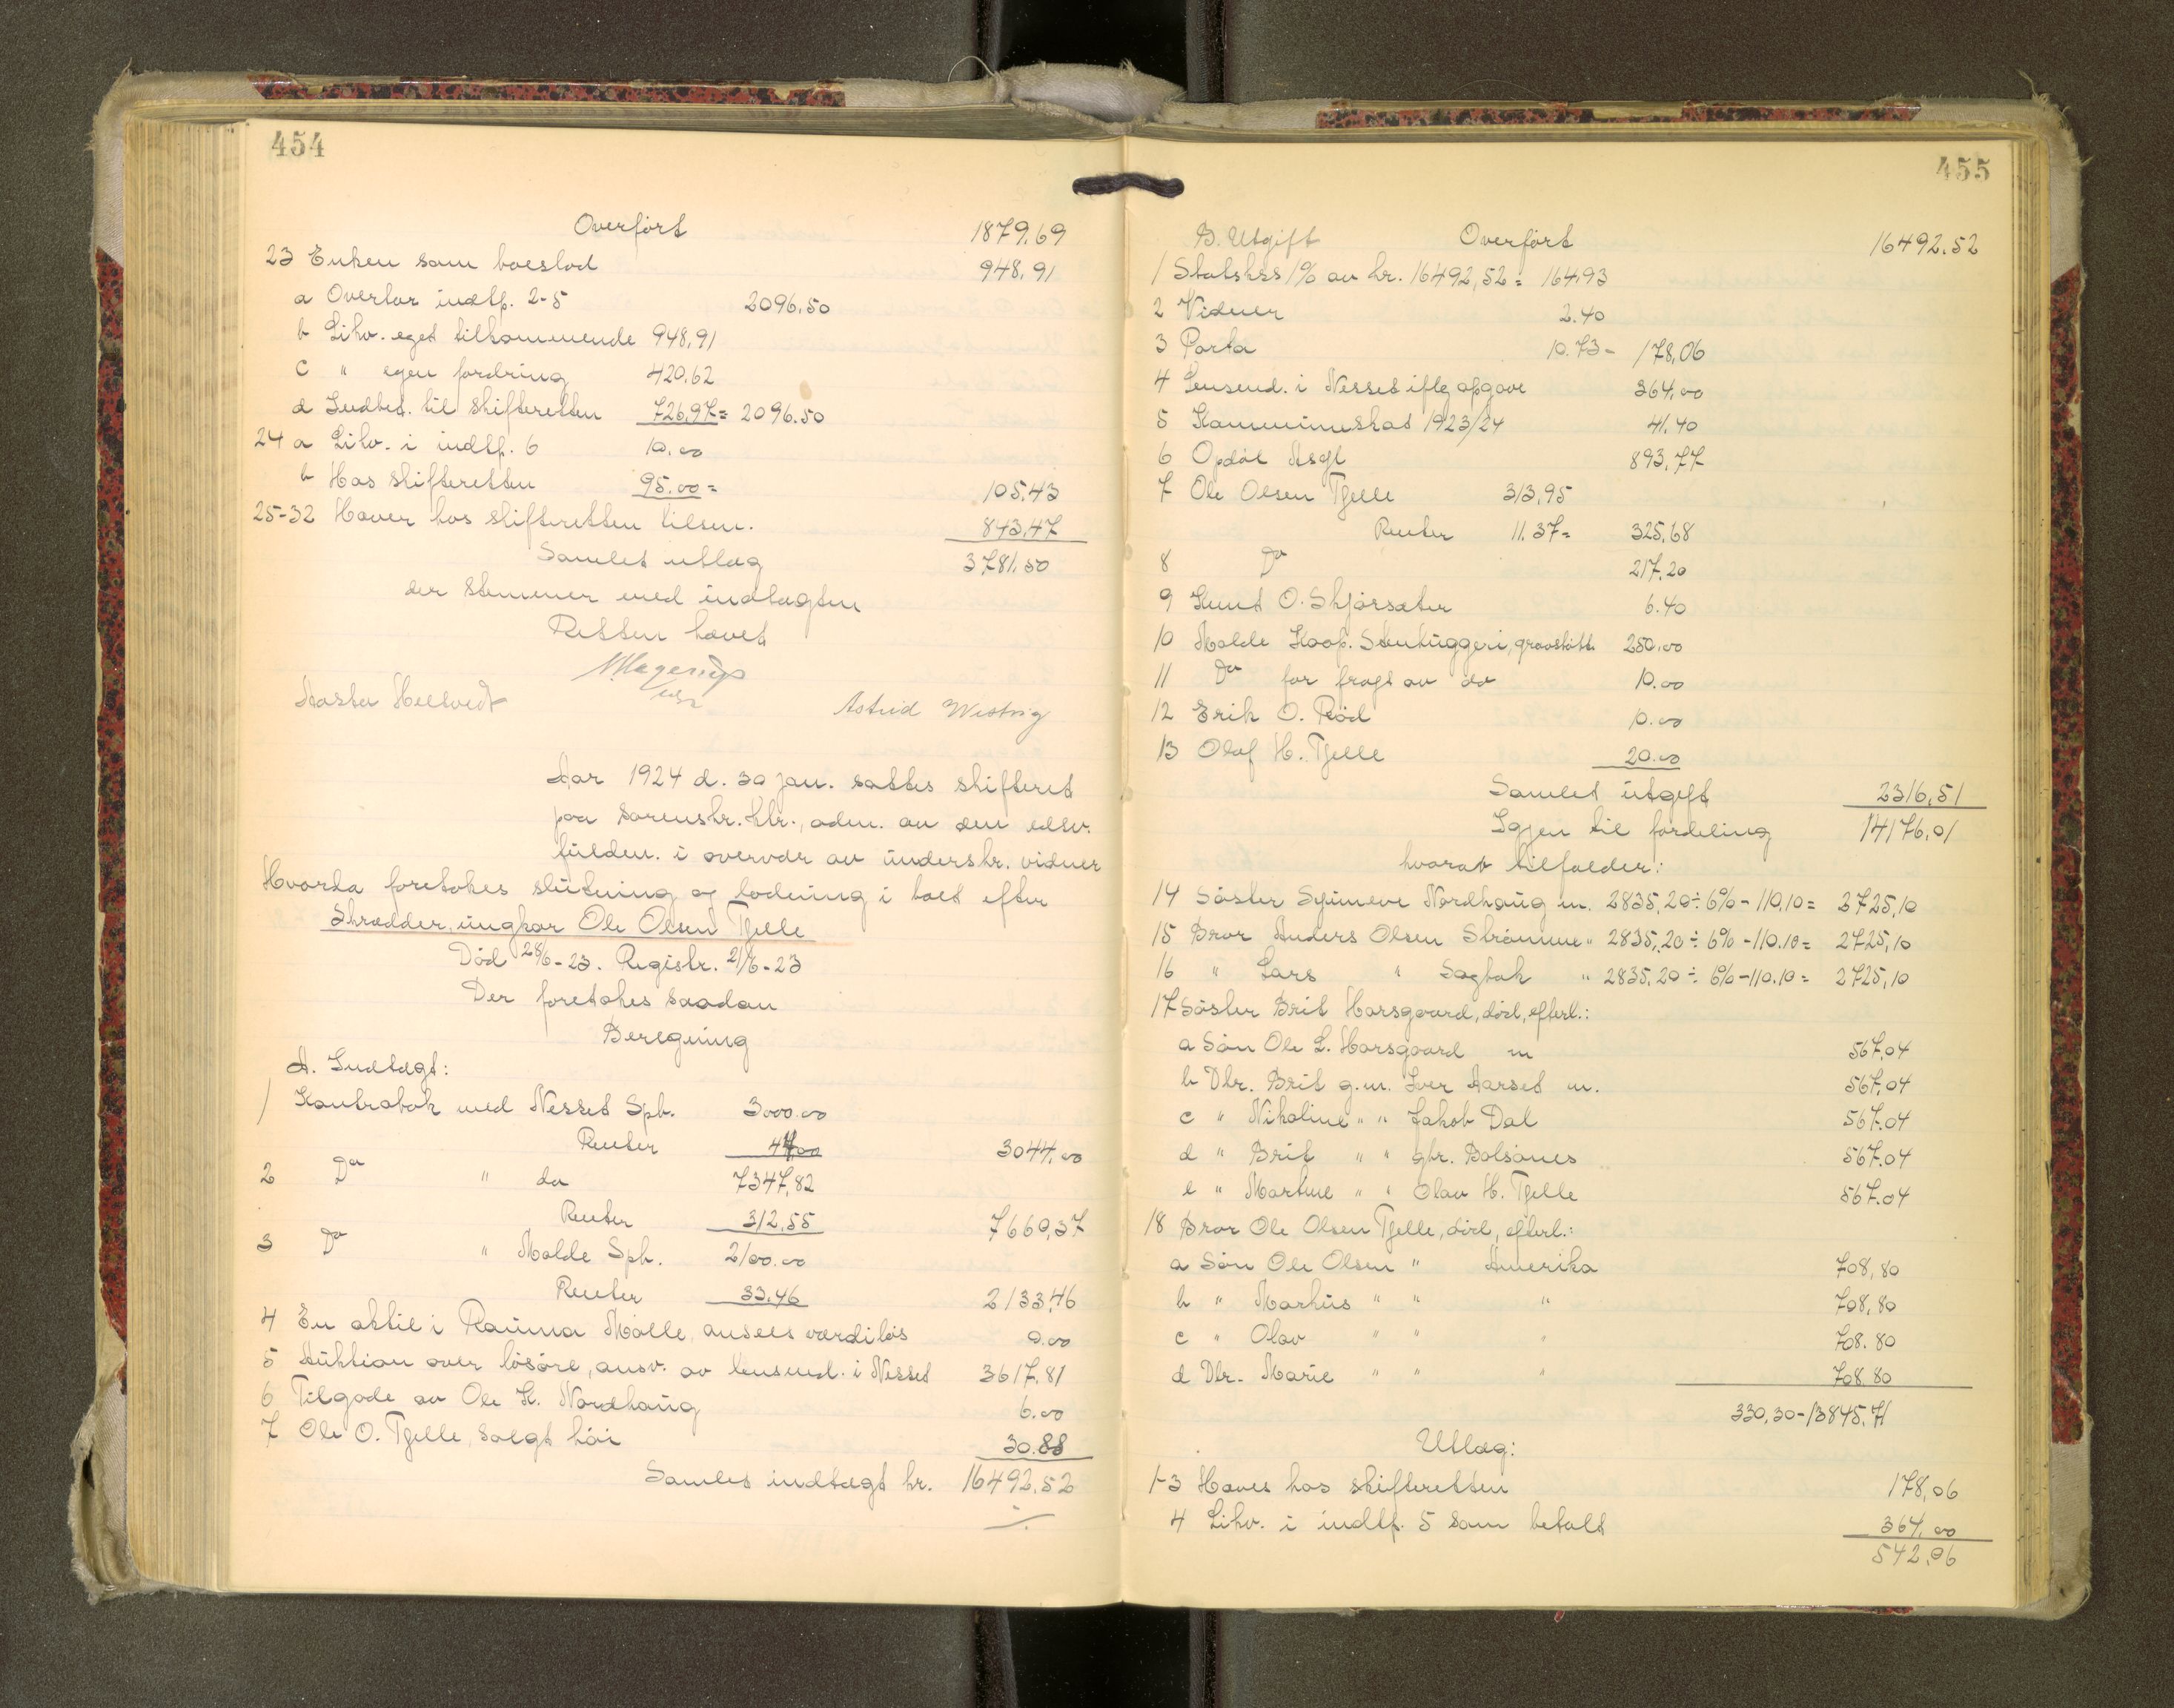 454
Overført 1879.69
23 Enken som boeslod 948,91
a Overtar indtf. 2-5 2096.50
b Likv. eget tilkommende 948,91
c " egen fordring 420.62
d Indbet. til skifteretten 726,97 = 2096.50
24 a Likv. i indtf. 6 10.00
b Hos skifteretten 95.00 = 105.43
25-32 Haver hos skifteretten tilsm. 843,47
Samlet utlæg 3781.50
der stemmer med indtægten
Retten hævet
Aasta Heltvedt Astrid Westvig
Aar 1924 d. 30 jan. sattes skifteret
paa sorenskr.ktr., adm. av den edsv.
fuldm. i overvær av underskr. vidner
Hvorda foretokes slutning og lodning i boet efter
Skrædder, ungkar Ole Olsen Tjelle
Død 28/6-23. Registr. 21/6-23
Der foretokes saadan
Beregning
A. Indtægt:
1 Kontrabok med Nesset Spb. 3000.00
Renter 44.00 3044.00
2 Do " do 7347,82
Renter 312,55 7660,37
3 Do " Molde Spb. 2100.00
Renter 33.46 2133,46
4 En aktie i Rauma Mølle, ansees værdiløs 0.00
5 Auktion over løsøre, ansv. av lensmd. i Nesset 3617.81
6 Tilgode av Ole K. Nordhaug 6.00
7 Ole O. Tjelle, solgt høi 30.88
Samlet indtægt kr. 16492.52
455
B. Utgift Overført 16492.52
1 Statskss 1% av kr. 16492,52 = 164.93
2 Vidner 2.40
3 Porto 10.73 = 178,06
4 Lensmd. i Nesset iflg opgave 364,00
5 Kommuneskat 1923/24 41.40
6 Opdøl Asgl 893.77
7 Ole Olsen Tjelle 313,95
Renter 11.37 = 325,68
8 Do 217.20
9 Knut O. Skjørsæter 6.40
10 Molde Koop. Stenhuggeri, gravstøtte 250.00
11 Do for fragt av do 10.00
12 Erik O. Rød 10.00
13 Olaf H. Tjelle 20.00
Samlet utgift 2316,51
Igjen til fordeling 14176.01
hvorav tilfalder:
14 Søster Synneve Nordhaug m. 2835,20 ÷ 6% - 110.10 = 3725,10
15 Bror Anders Olsen Strømme " 2835,20 ÷ 6% - 110.10 = 2725,10
16 " Lars " Sagbak " 2835,20 ÷ 6% - 110.10 = 2725,10
17 Søster Brit Horsgaard, død, efterl.:
a Søn Ole L. Horsgaard m 567.04
b Dtr. Brit g.m. Iver Aarset m. 567,04
c " Nikoline " " Jakob Dal 567.04
d " Brit " " gbr. Bolsønes 567.04
e " Martine " " Olav H. Tjelle 567.04
18 Bror Ole Olsen Tjelle, død, efterl.:
a Søn Ole Olsen " Amerika 708,80
b " Markus " " " 708,80
c " Olav " " " 708.80
d Dtr. Marie " " " 708.80
330.30 - 13845.71
Utlæg:
1-3 Haves hos skifteretten 178,06
4 Likv. i indtf. 5 som betalt 364.00
542.06